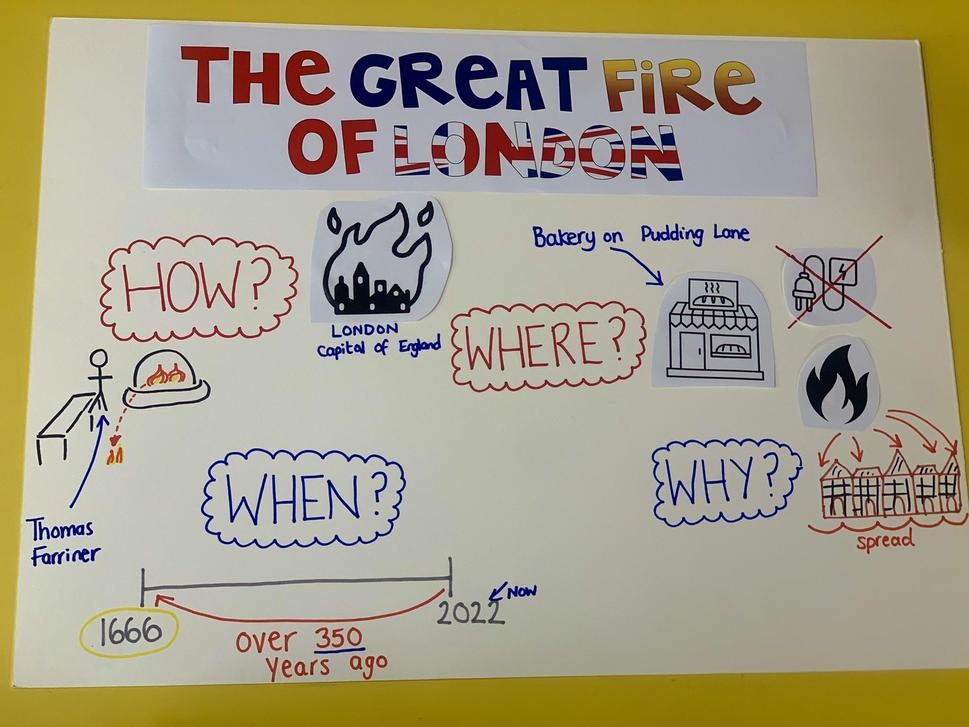 THE GREAT FiRe
OF LONDON
HOW?
LONDON
Capital of England
Bakery on Pudding Lane
WHERE?
Thomas
Farriner
WHEN?
WHY?
spread
1666
2022
NOW
over 350
years ago